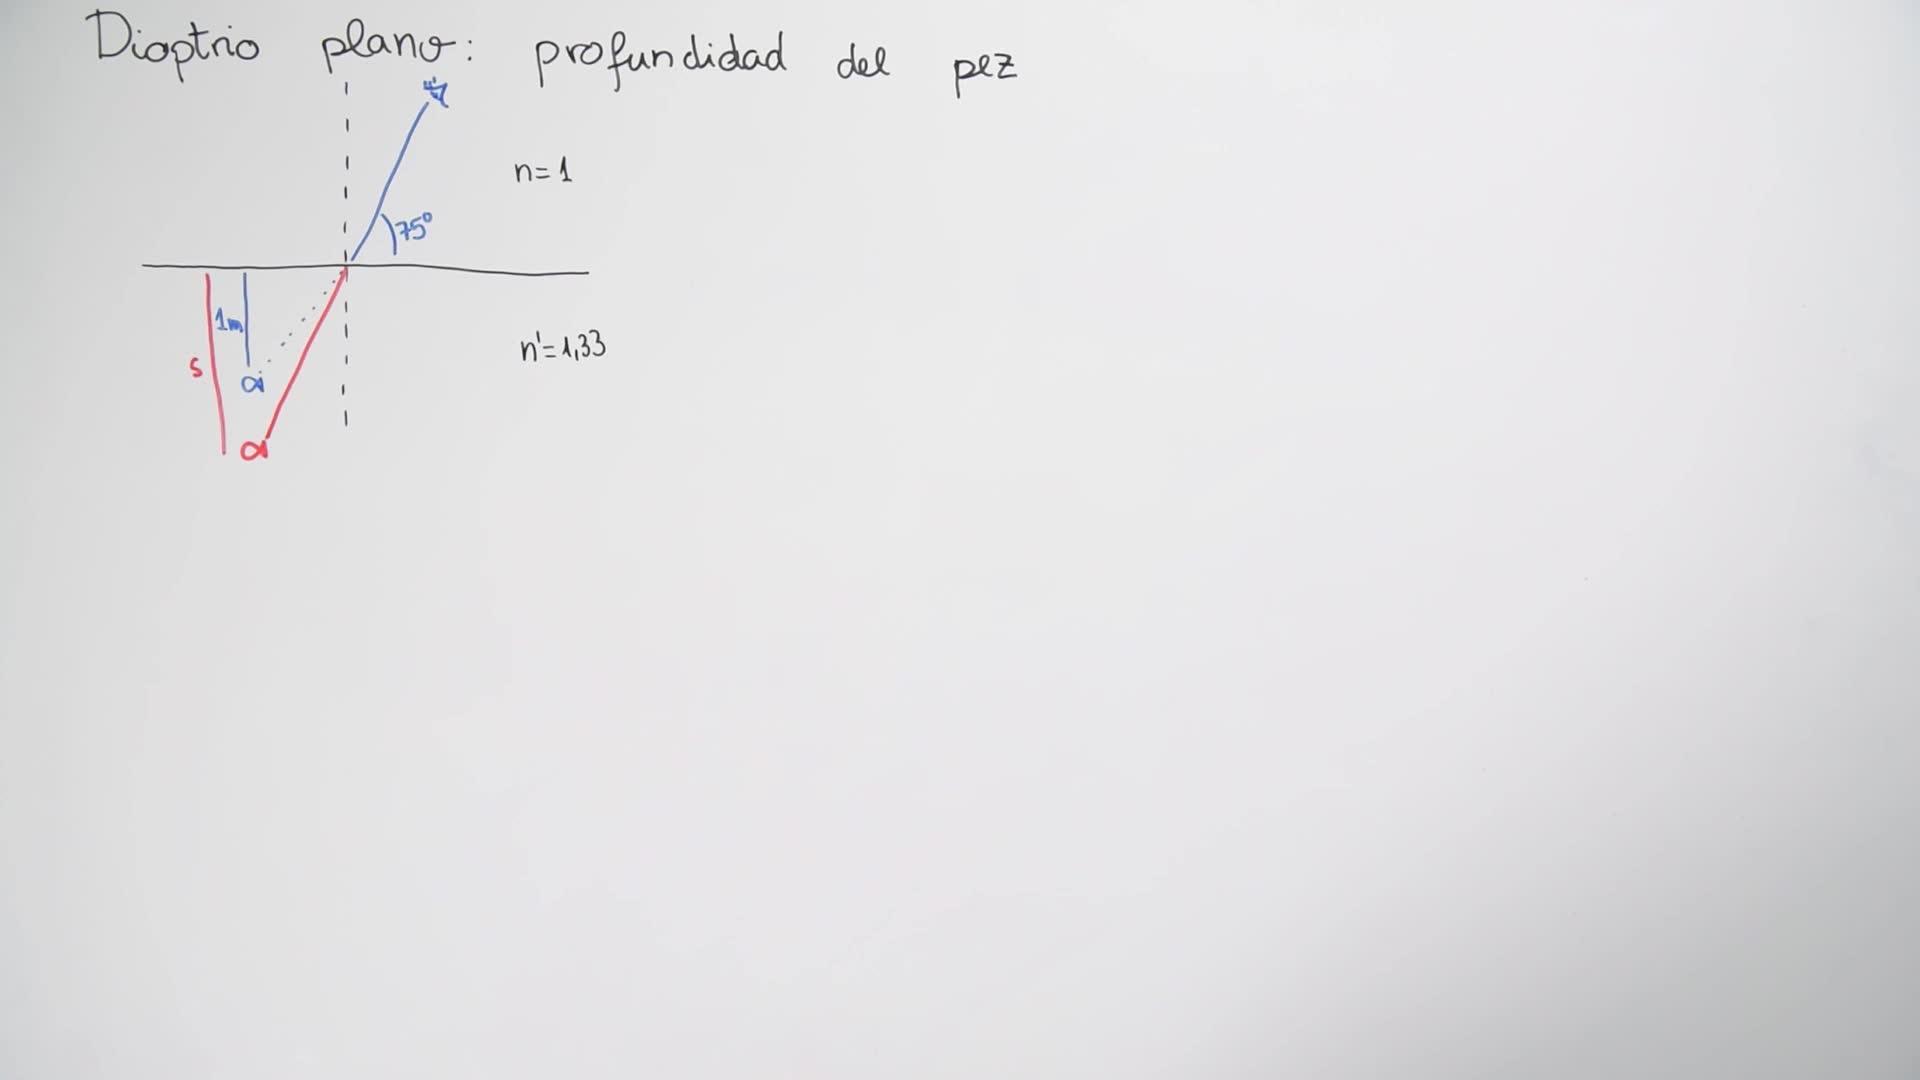 Dioptrio plano: profundidad del pez
n=1
75º
1m
n'=1,33
s